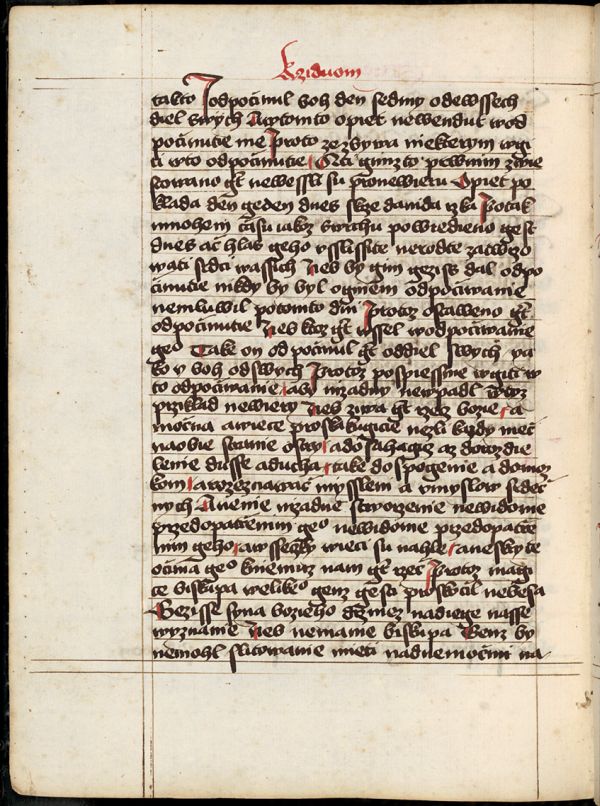 Kziduom
takto J odpočinul boh den sedmy odewssech
diel swych A wtomto opiet newendut wod
počinutie me Proto ze zbywa niekterym wgi
ti wto odpočinutie A ti gimzto prwnim zwie
stowano gt newessli su pro newieru Opiet po
klada den geden dnes skze dawida rzka Po tak
mnohem času iakoz swrchu powiedieno gest
dnes ač hlas geho vslissite nerodte zatwrzo
wati srdci wassich Neb by gim gezis dal odpo
činutie nikdy by byl o ginem odpočiwanie
nemluwil potomto dni Protoz ostaweno gt
odpočinutie Neb ktoz gt wssel wodpočiwanie
geo Take on odpočinul gt od diel swych ya
ko y boh od swych Protoz pospiessme wgiti w
to odpočiwanie aby nizadny newpadl wtyz
przieklad newiery Neb ziwa gt rzec bozie a
mocna a wiece proskakugicie nezli kazdy meč
na obie stranie ostry a dosahagiz az do rozdie
lenie dusse a ducha take do spogenie a do moz
kow a rozeznawač myssleni a vmyslow srdeč
nych A nenie nizadne stworzenie newidome
przed opatrenim geo newidome przed opatrze
nim geho a wsseczky wieci su nahle a neskyte
očima geo knemuz nam gt rzec Protoz magi
ce biskupa welikeo genz gest proskočil nebesa
Gezisse syna bozieho drzmez nadiege nasse
wyznanie Neb nemame biskupa Genz by
nemohl slitowanie mieti nad nemočmi na